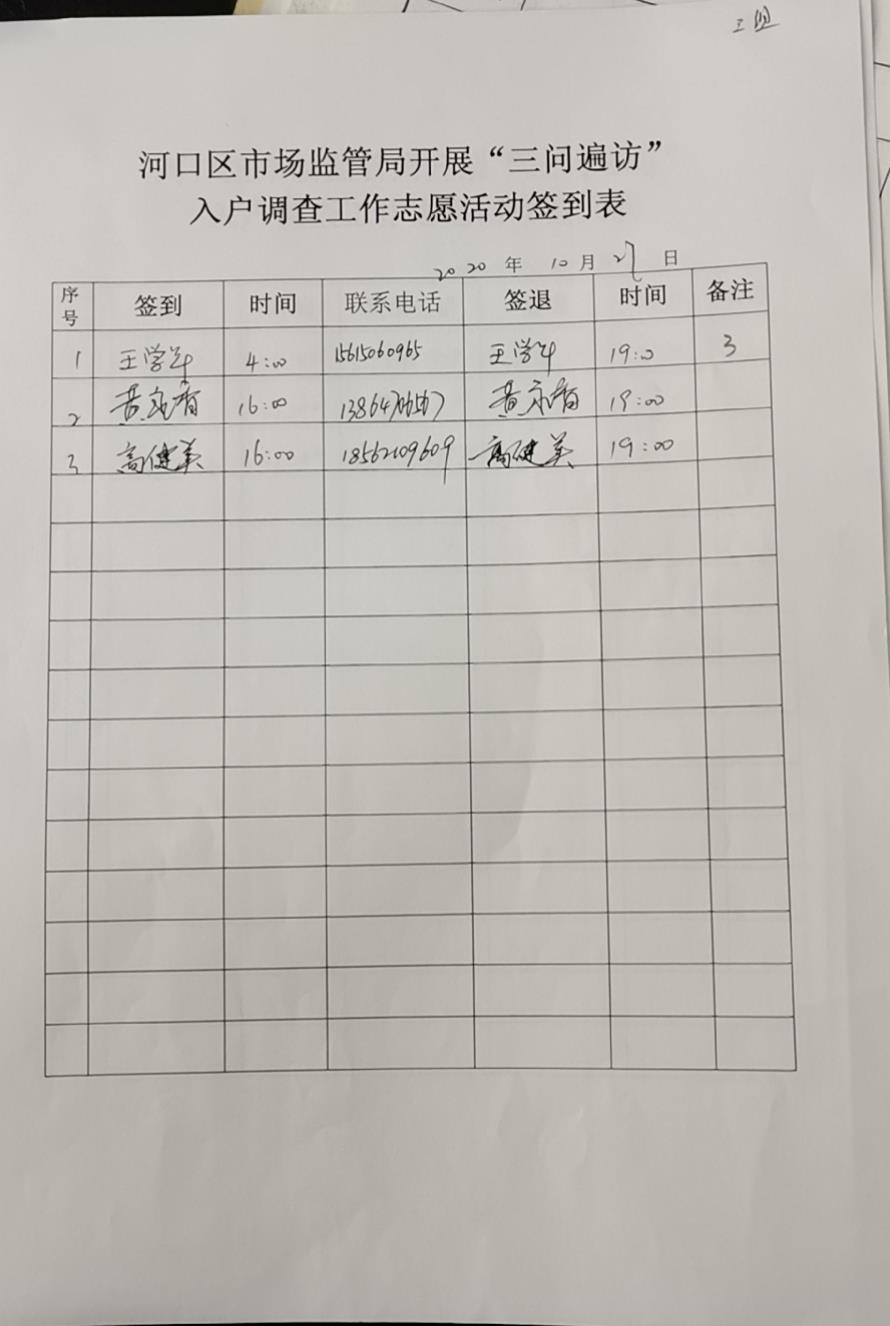 三组
河口区市场监管局开展“三问遍访”
入户调查工作志愿活动签到表
2020 年 10 月 27 日
序号 签到 时间 联系电话 签退 时间 备注
1 王学军 4:00 15615060965 王学军 19:0 3
2 黄 16:00 黄 19:00
3 高健美 16:00 18562109609 高健美 19:00